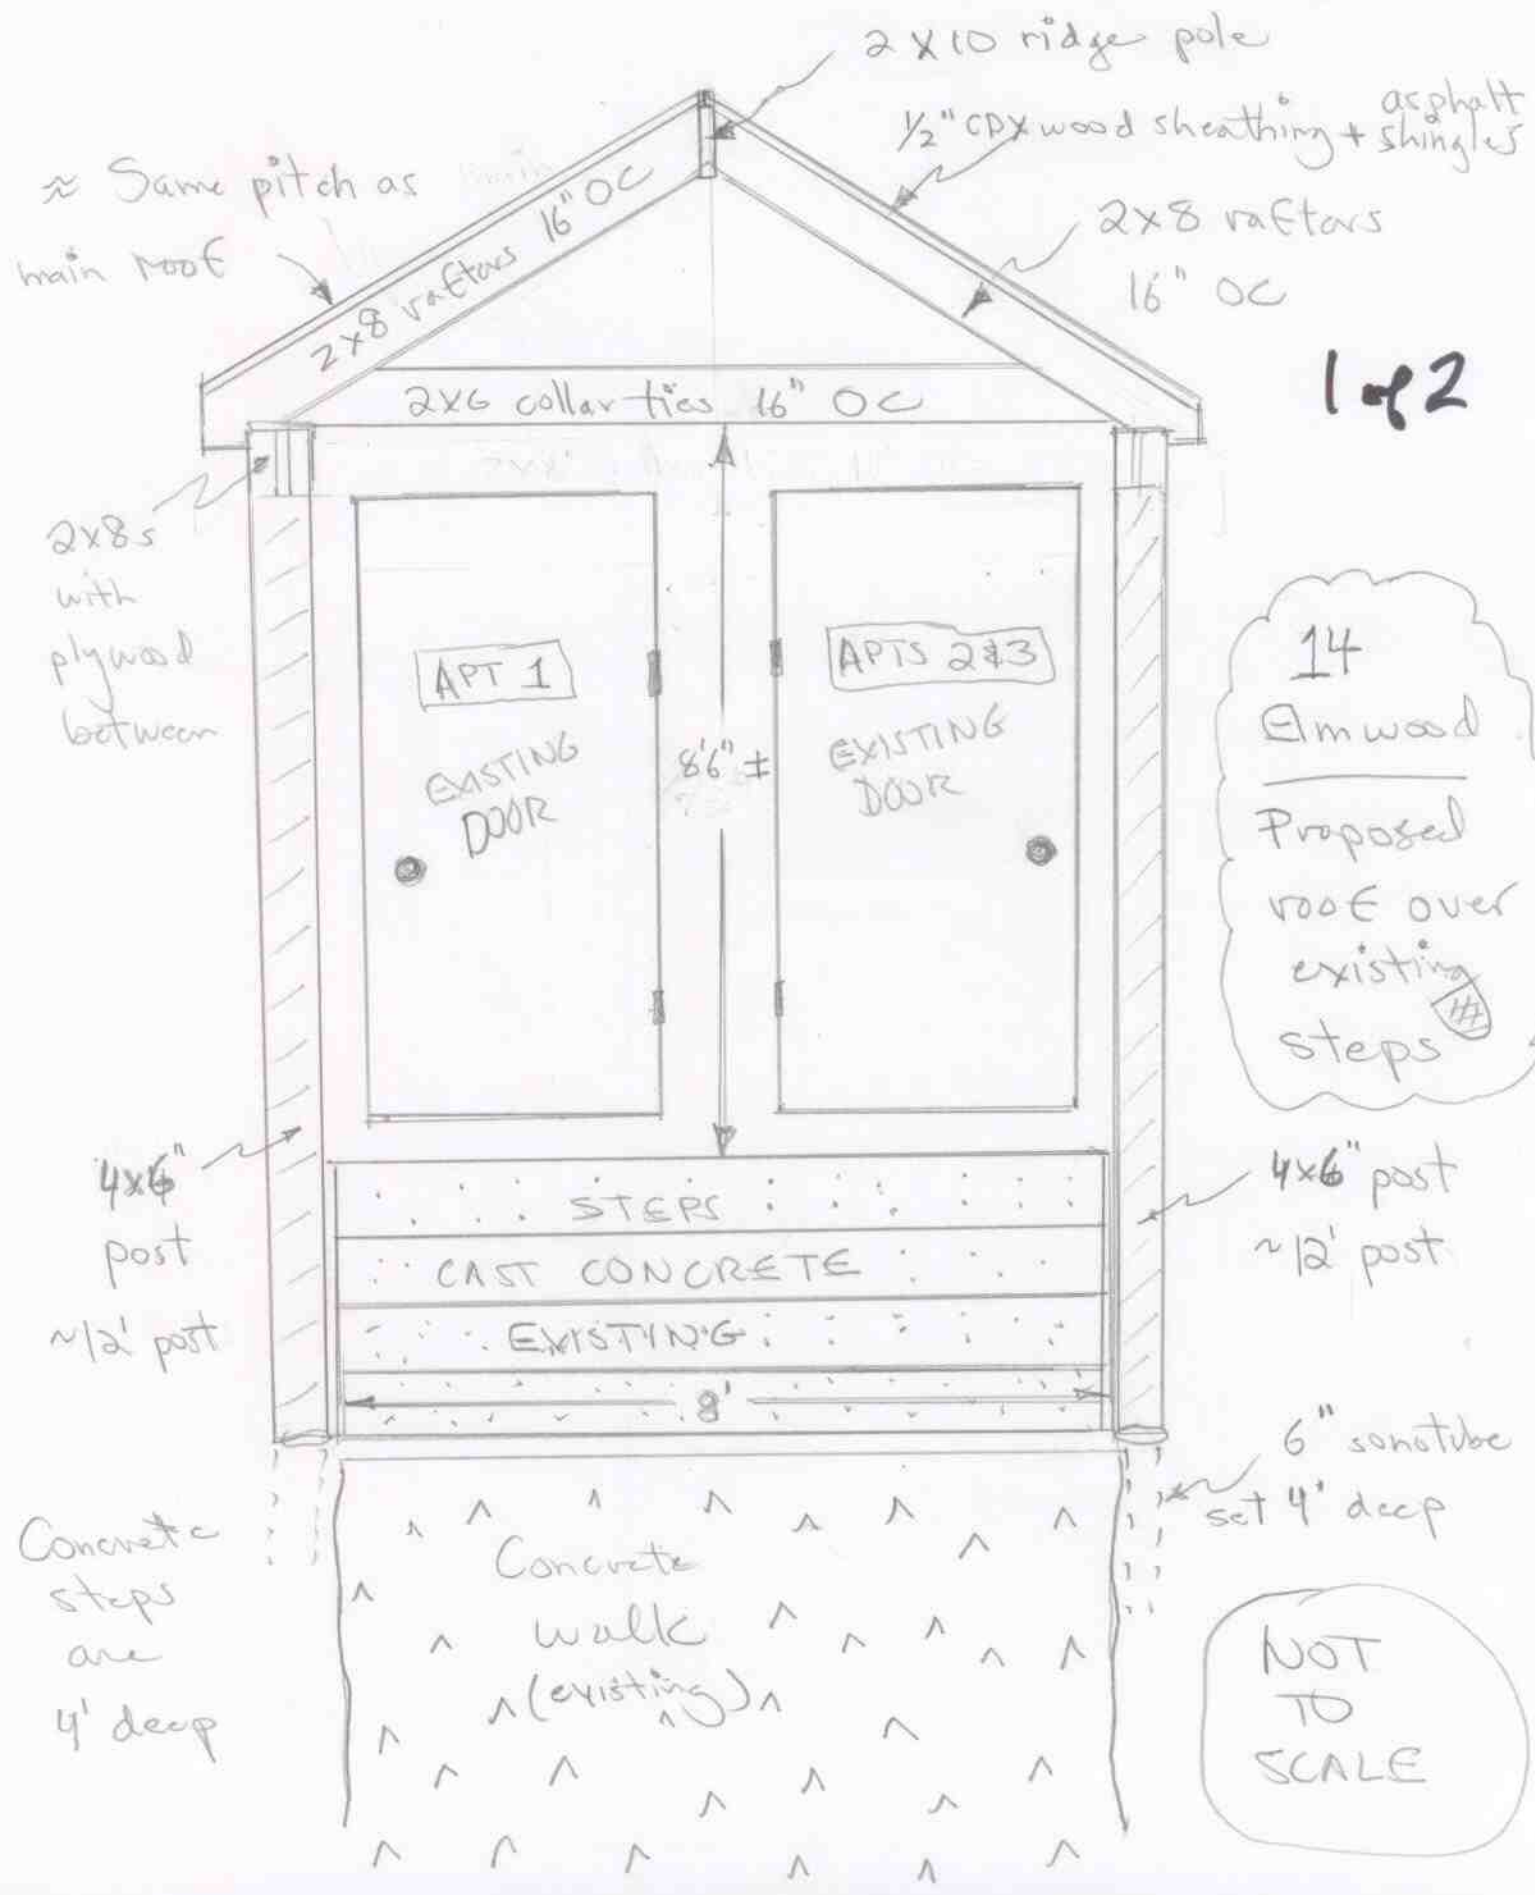 2 x 10 ridge pole
1/2" CDX wood sheathing + asphalt shingles
≈ Same pitch as
main roof
2x8 raftors 16" OC
2x8 raftors
16" OC
1 of 2
2x6 collar ties 16" OC
2x8s
with
plywood
between
APT 1
EXISTING
DOOR
8'6" ±
APTS 2&3
EXISTING
DOOR
14
Elmwood
Proposed
roof over
existing
steps
4x6"
post
~12' post
4x6" post
~12' post
STEPS
CAST CONCRETE
EXISTING
8'
6" sonotube
set 4' deep
Concrete
steps
are
4' deep
Concrete
walk
(existing)
NOT
TO
SCALE